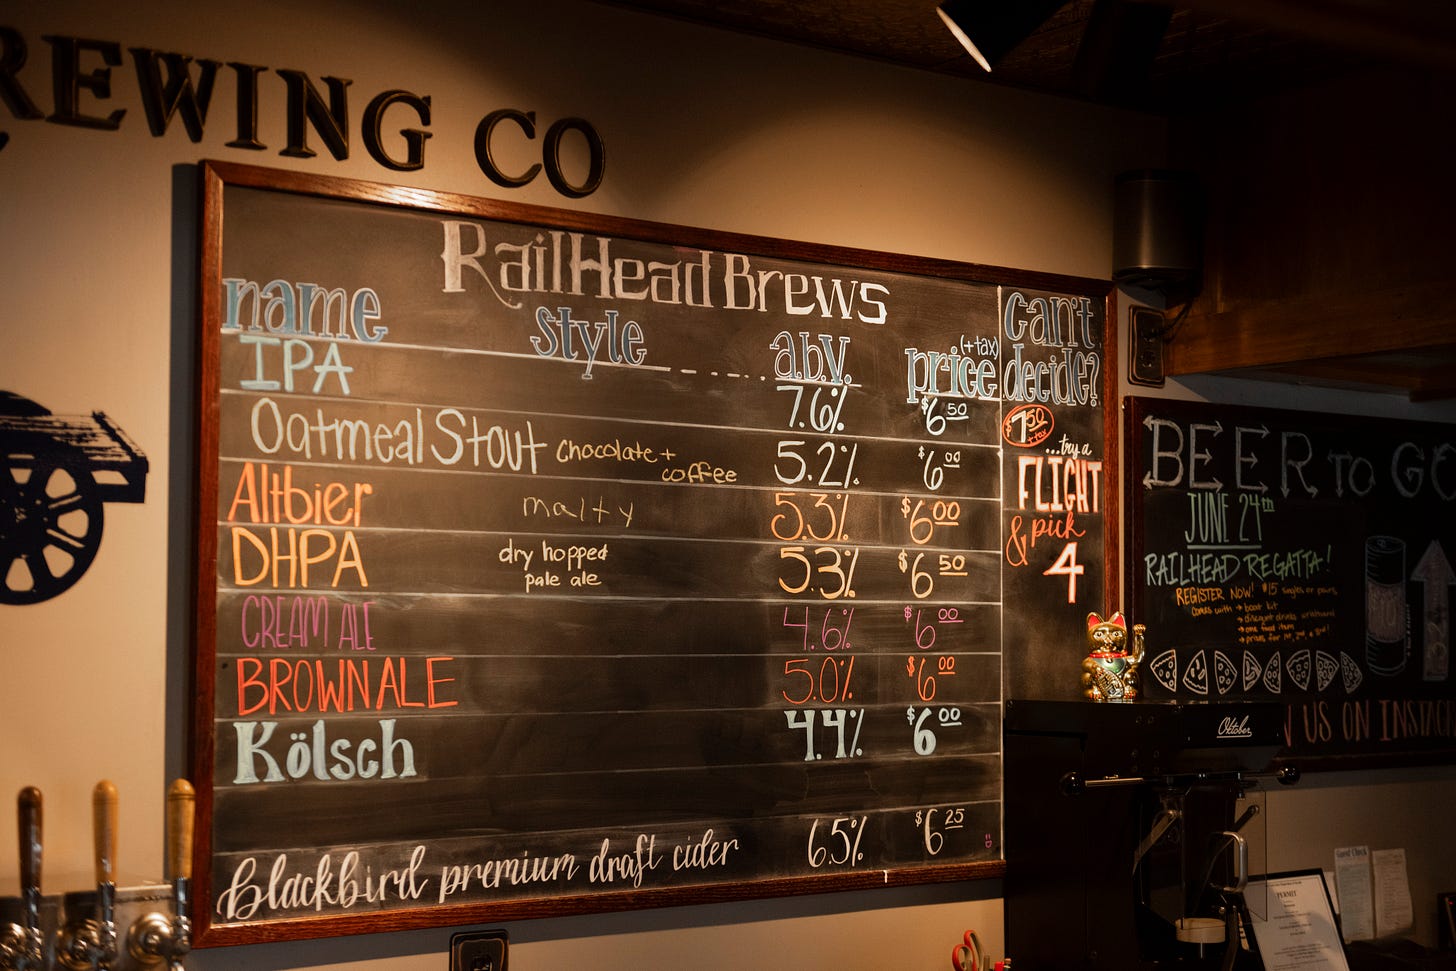 REWING CO
RailHead Brews
name style a.b.v. price (+tax)
IPA 7.6% $6 50
Oatmeal Stout chocolate + coffee 5.2% $6 00
Altbier malty 5.3% $6 00
DHPA dry hopped pale ale 5.3% $6 50
CREAM ALE 4.6% $6 00
BROWN ALE 5.0% $6 00
Kölsch 4.4% $6 00
blackbird premium draft cider 6.5% $6 25
can't
decide?
$7 50
+ tax
...try a
FLIGHT
& pick
4
BEER TO GO
JUNE 24th
RAILHEAD REGATTA!
REGISTER NOW! $15 singles or pairs,
comes with → boat kit
→ discount drinks wristband
→ one food item
→ prizes for 1st, 2nd, & 3rd!
N US ON INSTAG
Oktober
Guest Check
PERMIT